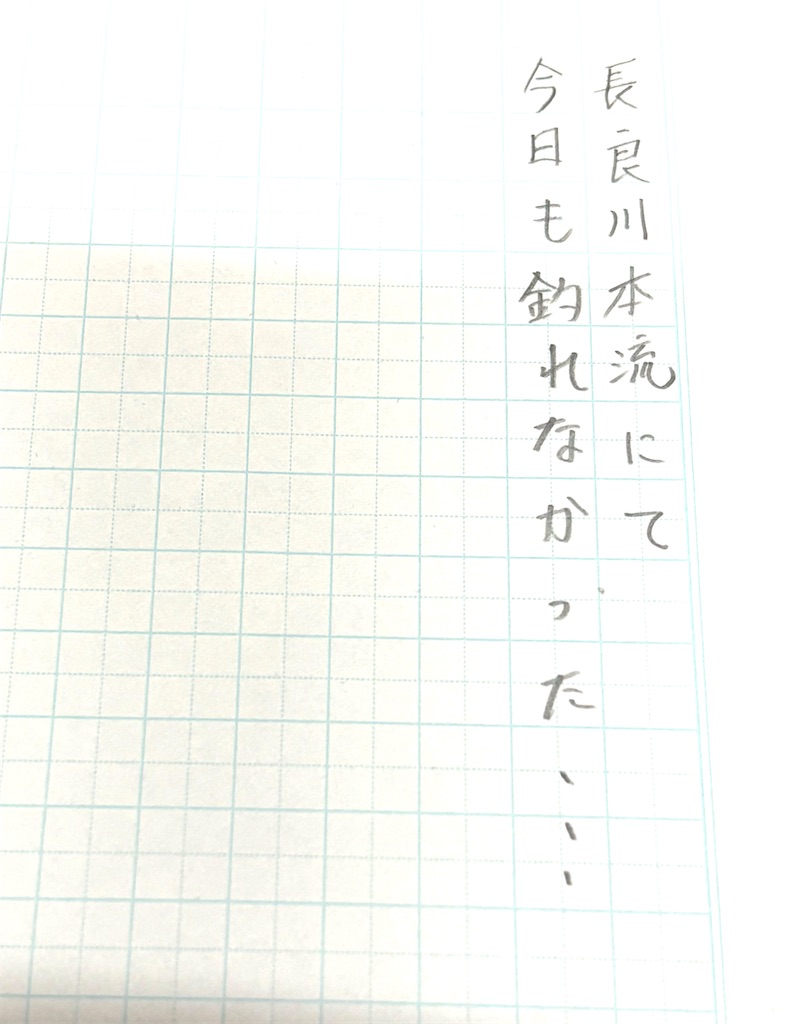 長良川本流にて
今日も釣れなかった、、、